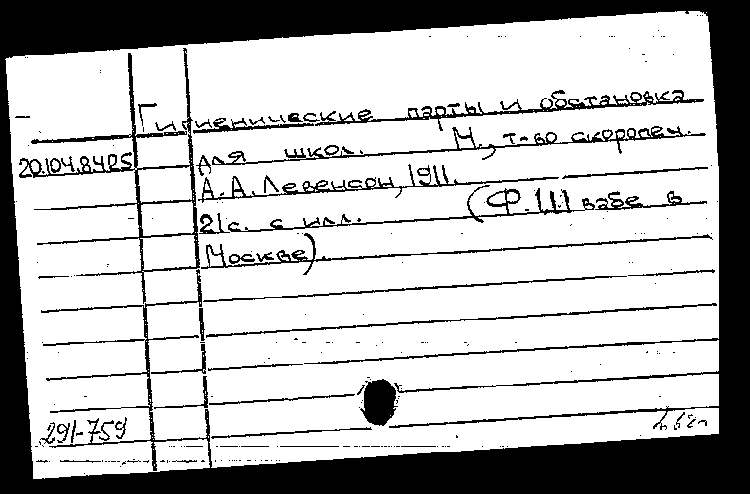 Гигиенические парты и обстановка
20.104.8.425 для школ. М., т-во скоропеч.
А.А. Левенсон, 1911.
21с. с илл. (Ф. Швабе в
Москве).
291-759